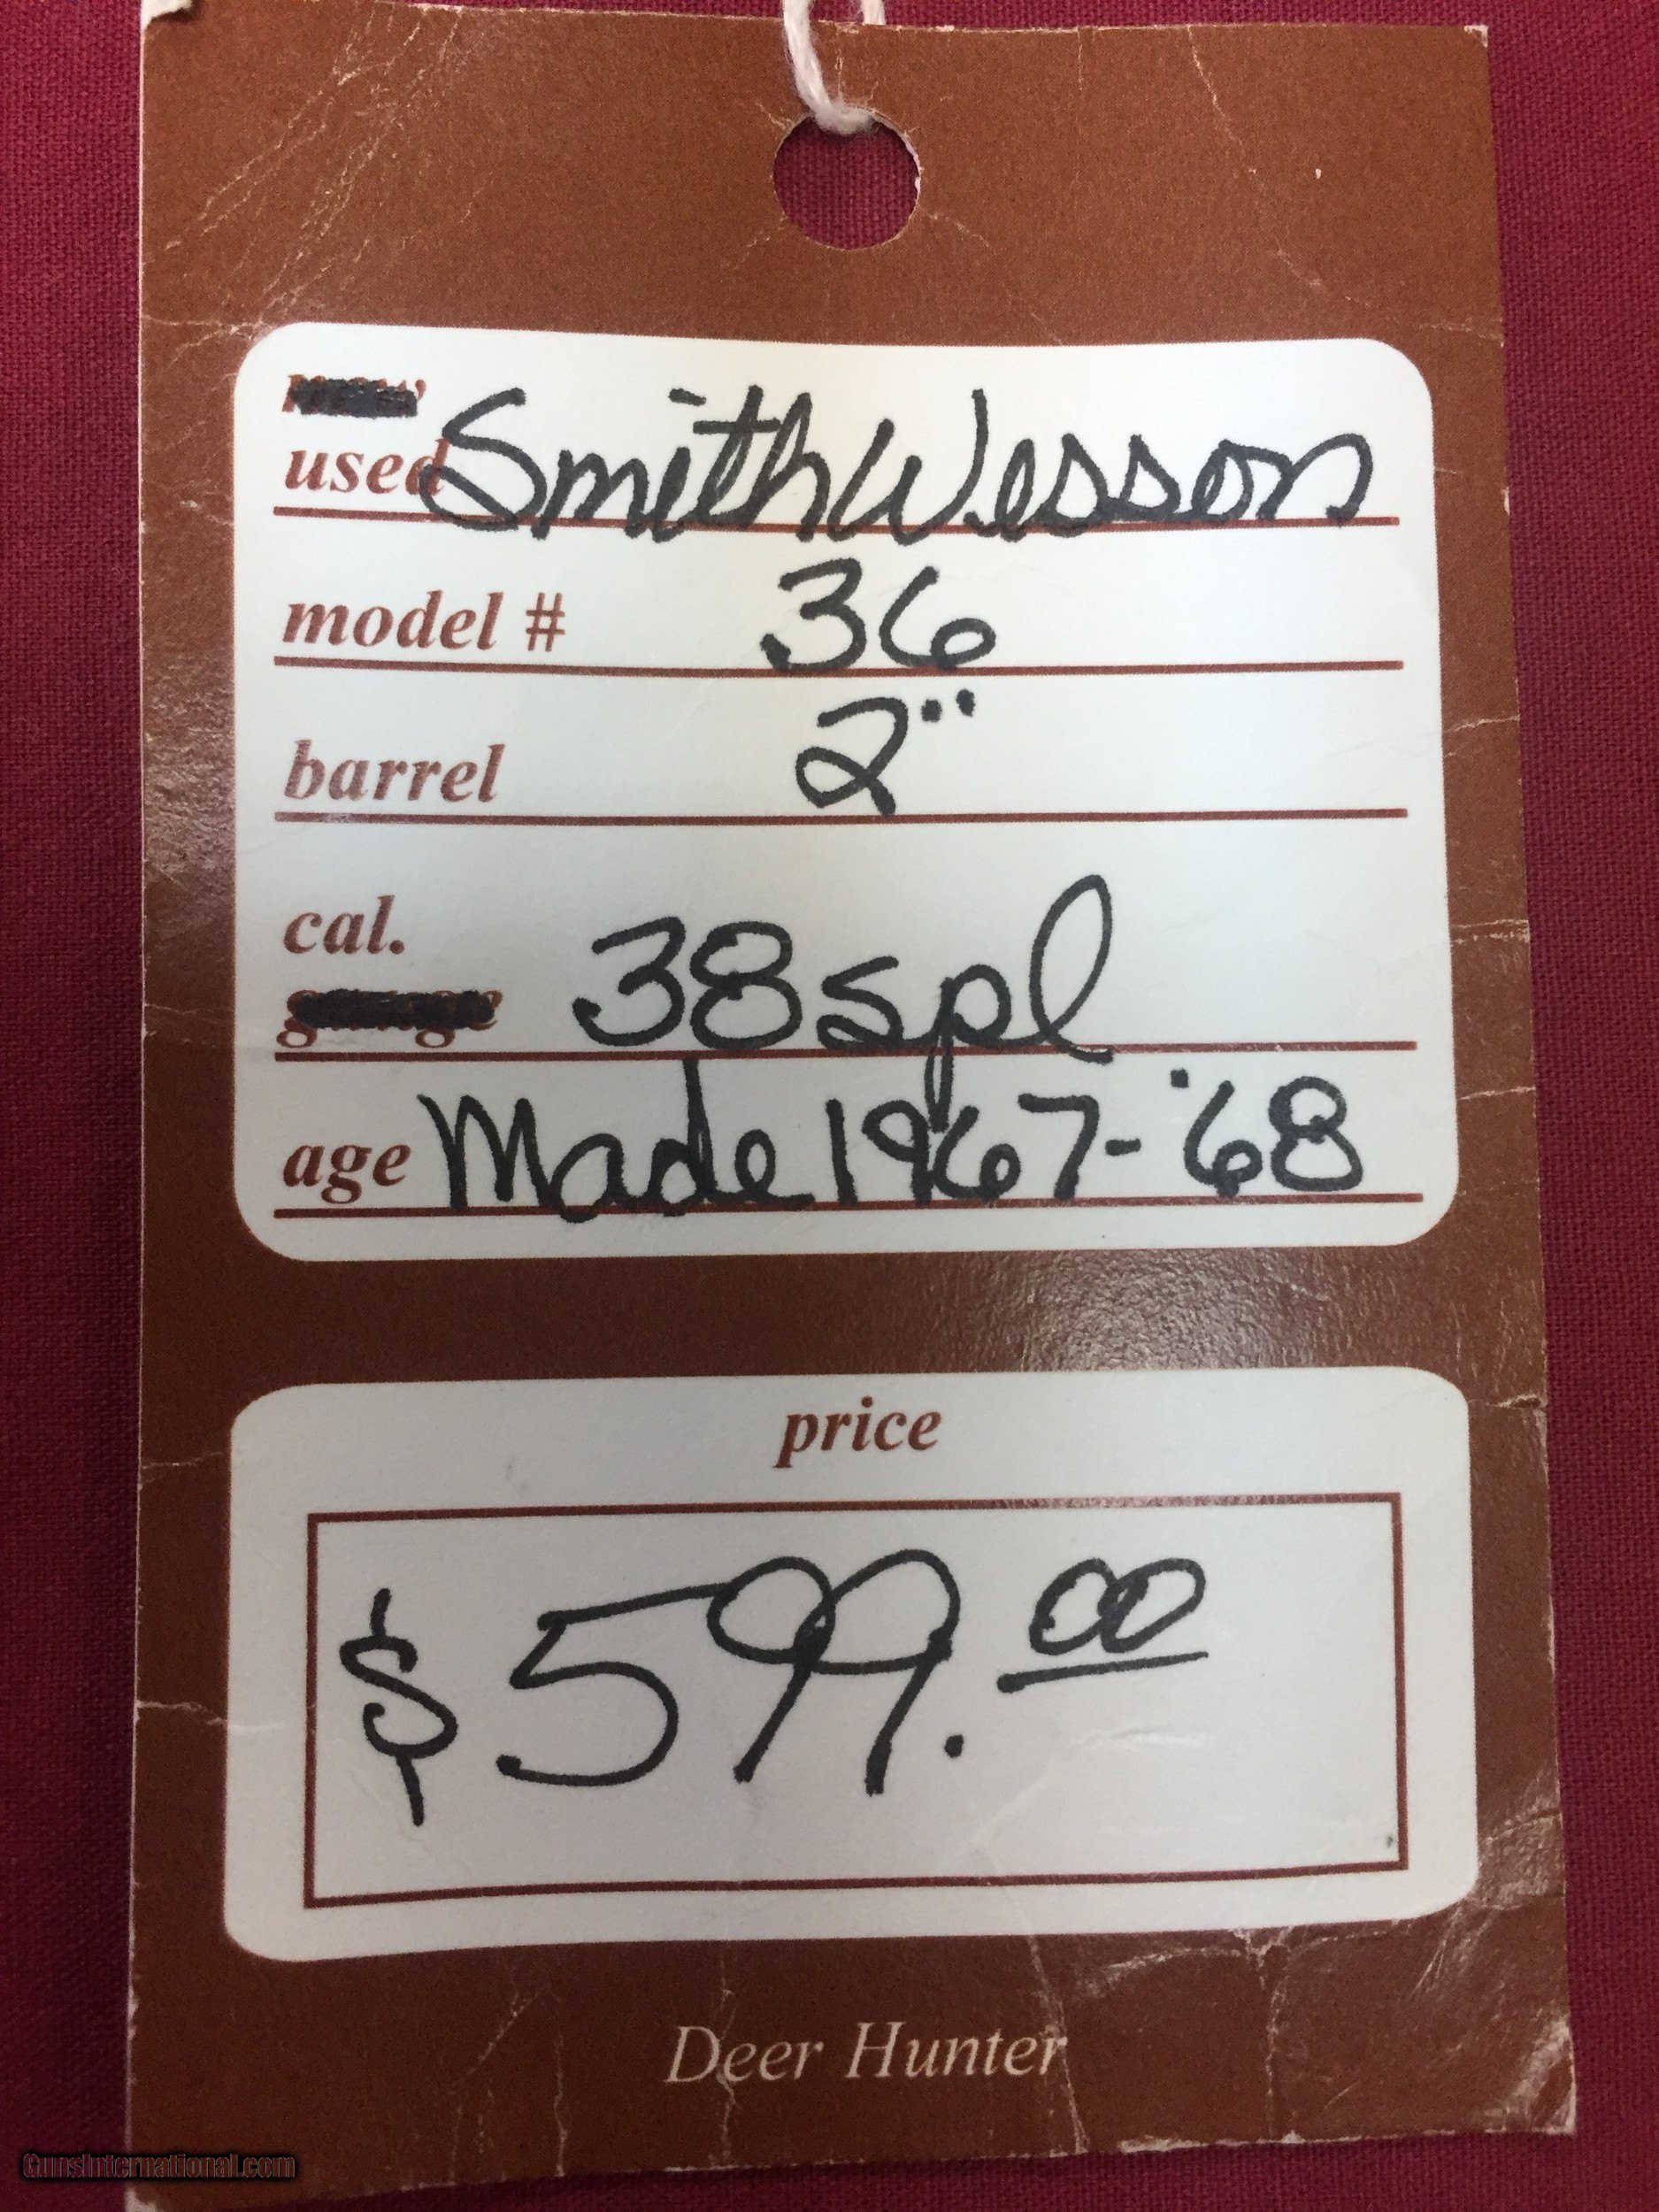 new
used Smith Wesson
model # 36
barrel 2"
cal.
gauge 38 spl
age Made 1967-'68
price
$599.00
Deer Hunter
GunsInternational.com